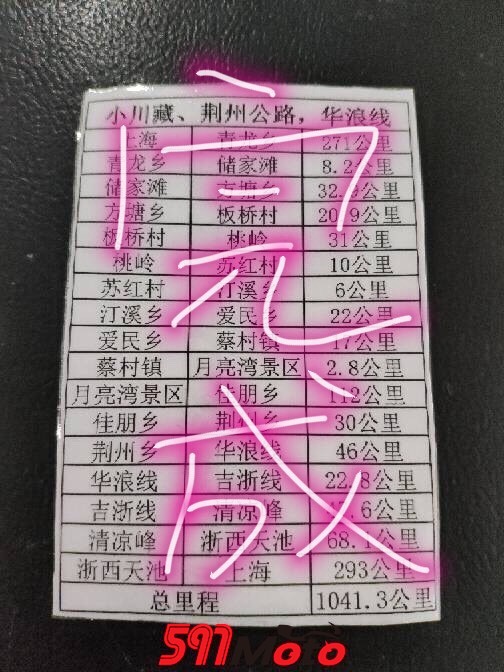 小川藏、荆州公路，华浪线
上海 青龙乡 271公里
青龙乡 储家滩 8.2公里
储家滩 方塘乡 32.9公里
方塘乡 板桥村 20.9公里
板桥村 桃岭 31公里
桃岭 苏红村 10公里
苏红村 汀溪乡 6公里
汀溪乡 爱民乡 22公里
爱民乡 蔡村镇 17公里
蔡村镇 月亮湾景区 2.8公里
月亮湾景区 佳朋乡 112公里
佳朋乡 荆州乡 30公里
荆州乡 华浪线 46公里
华浪线 吉浙线 22.8公里
吉浙线 清凉峰 47.6公里
清凉峰 浙西天池 68.1公里
浙西天池 上海 293公里
总里程 1041.3公里
完
成
597Moto